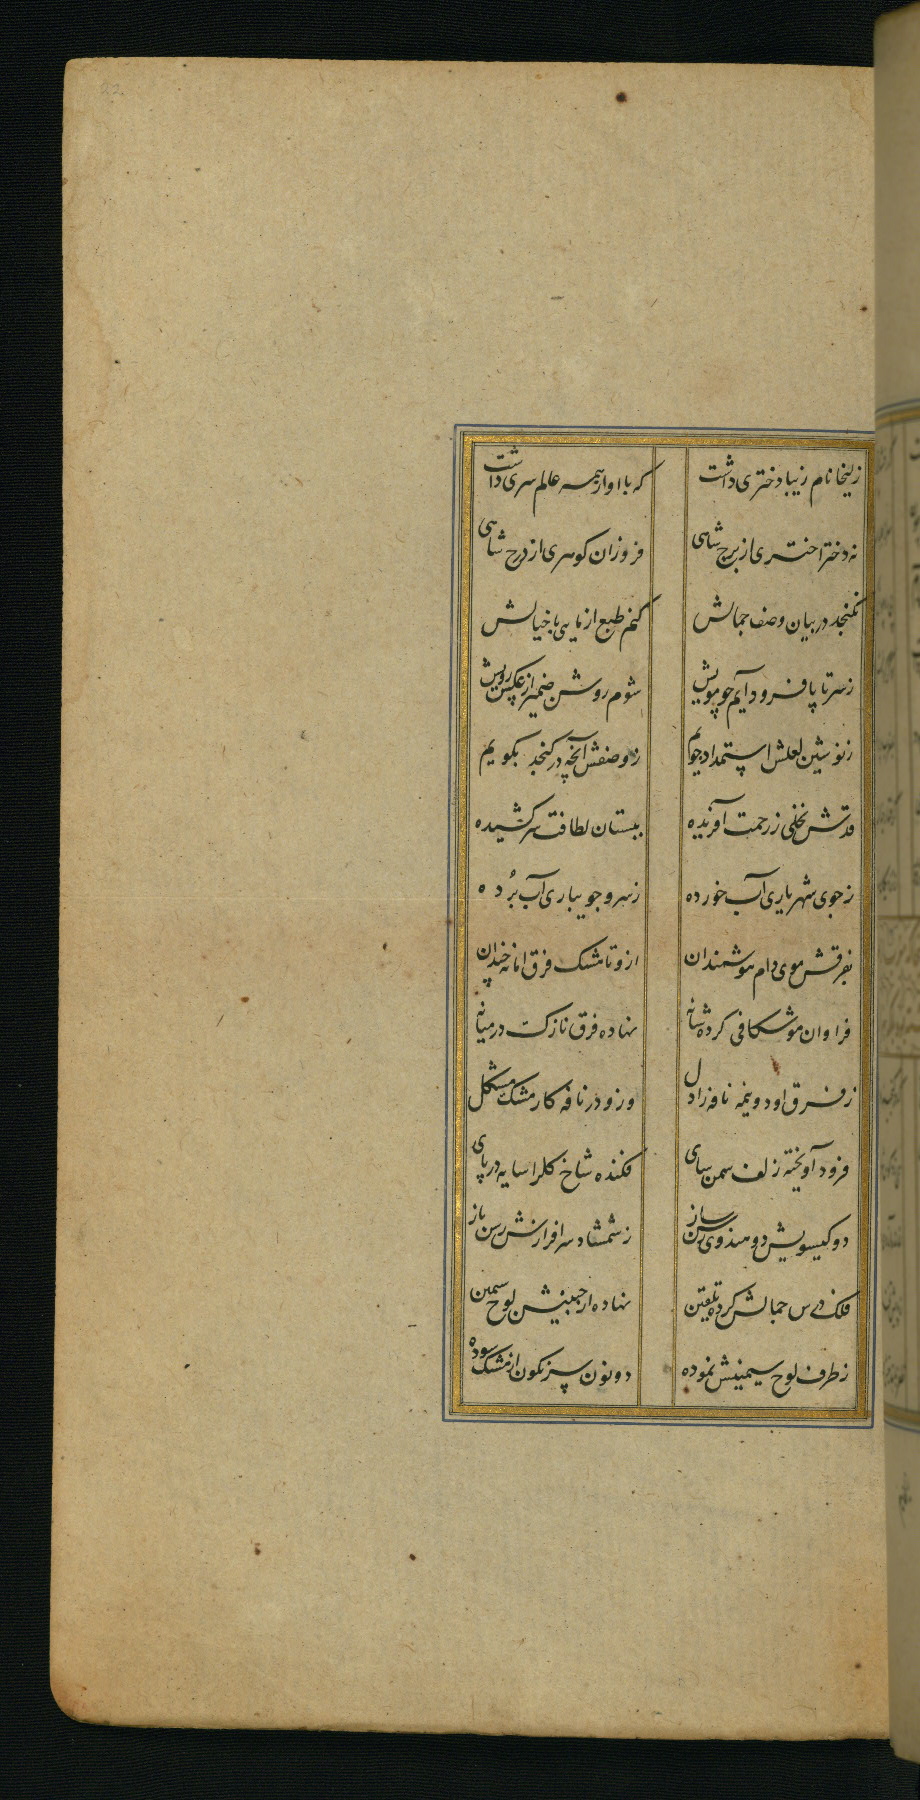 زلیخا نام زیبا دختری داشت که با او از همه عالم سری داشت
نه دختر اختری از برج شاهی فروزان کوهری از درج شاهی
نکنجد در بیان وصف جمالش کنم طبع ازمایی با خیالش
ز سر تا پا فرود آیم چو مویش شوم روشن ضمیر از عکس رویش
ز نوشین لعلش استمداد جویم ز وصفش آنچه در کنجد بکویم
قدش نخلی ز رحمت آفریده ببستان لطافت سر کشیده
ز جوی شهریاری آب خورده ز سرو جویباری آب برده
بفرقش موی دام هوشمندان ازو تا مشک فرق اما نه چندان
فراوان موشکافی کرده شانه نهاده فرق نازکت در میانه
ز فرق او دو نیمه نافه را دل وزو در نافه کار مشک مشکل
فرود آویخته زلف سمن سای فکنده شاخ کلرا سایه در پای
دو کیسویش دو هندوی رسن ساز ز شمشاد سرافرازش رسن باز
فلک درس جمالش کرده تلقین نهاده از جبینش لوح سیمین
ز طرف لوح سیمینش نموده دو نون سرنکون از مشک سوده